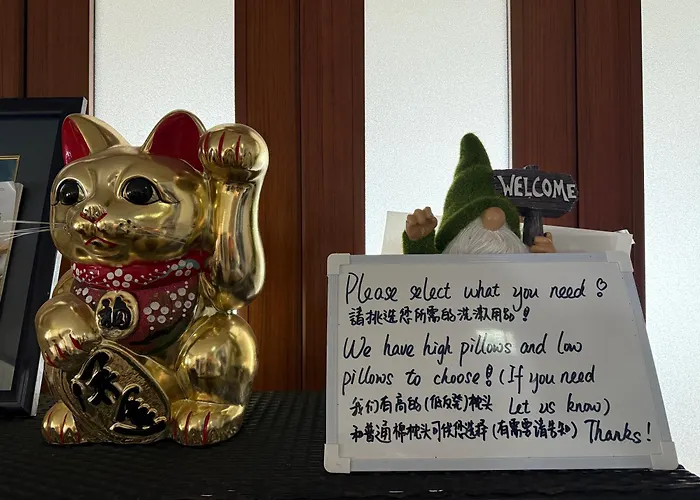 WELCOME
Please select what you need!
請挑选您所需的洗漱用的!
We have high pillows and low
pillows to choose! (If you need
我们有高的(低反発)枕头 Let us know)
和普通棉枕头可供您选择(有需要请告知) Thanks!
福